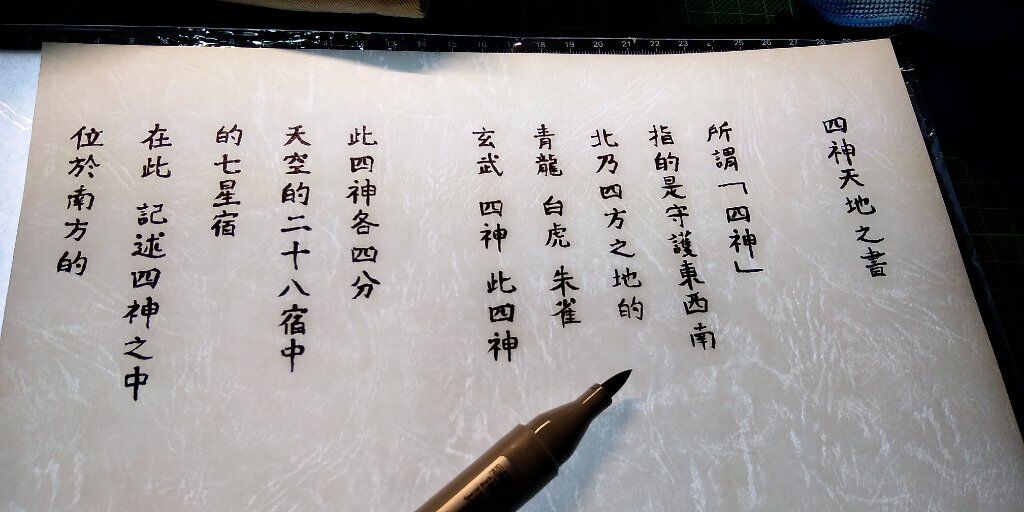 四神天地之書
所謂「四神」
指的是守護東西南
北乃四方之地的
青龍 白虎 朱雀
玄武 四神 此四神
此四神各四分
天空的二十八宿中
的七星宿
在此 記述四神之中
位於南方的